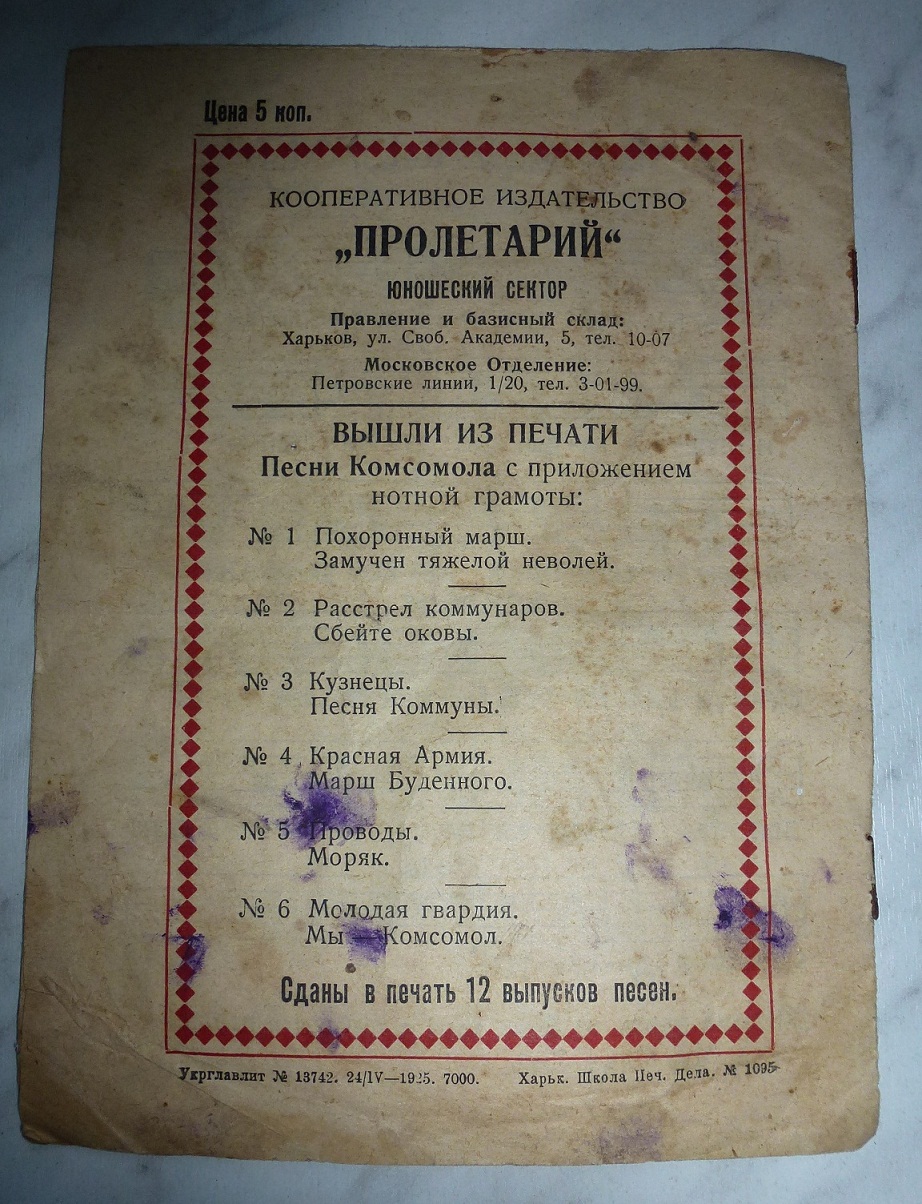 Цена 5 коп.
КООПЕРАТИВНОЕ ИЗДАТЕЛЬСТВО
„ПРОЛЕТАРИЙ“
ЮНОШЕСКИЙ СЕКТОР
Правление и базисный склад:
Харьков, ул. Своб. Академии, 5, тел. 10-07
Московское Отделение:
Петровские линии, 1/20, тел. 3-01-99.
ВЫШЛИ ИЗ ПЕЧАТИ
Песни Комсомола с приложением
нотной грамоты:
№ 1 Похоронный марш.
Замучен тяжелой неволей.
№ 2 Расстрел коммунаров.
Сбейте оковы.
№ 3 Кузнецы.
Песня Коммуны.
№ 4 Красная Армия.
Марш Буденного.
№ 5 Проводы.
Моряк.
№ 6 Молодая гвардия.
Мы — Комсомол.
Сданы в печать 12 выпусков песен.
Укрглавлит № 13742. 24/IV—1925. 7000. Харьк. Школа Печ. Дела. № 1095